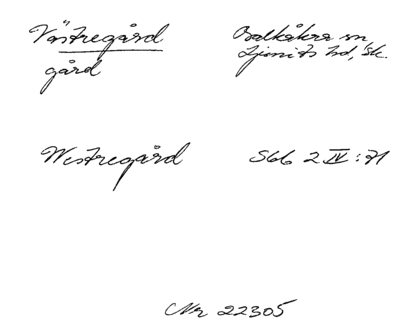 Västregård
Balkåkra sn,
Ljunits hd, Sk.
gård
Westregård
Sbb 2 IV : 71
Nr 22305